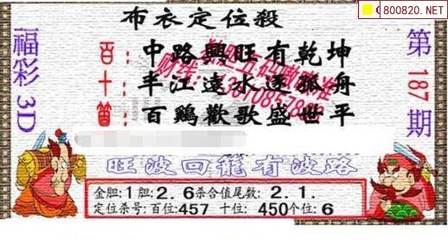 800820.NET
布衣定位殺
福彩3D
第187期
百：中路興旺有乾坤
十：丰江遠水逐孤舟
個：百鷄歡歌盛世平
旺波回龍有波路
金胆:1胆:2.6杀合值尾数:2.1.
定位杀号:百位:457 十位:450个位:6